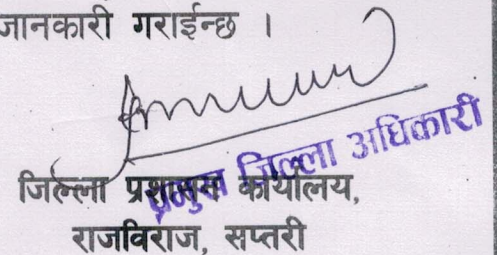 जानकारी गराईन्छ ।
प्रमुख जिल्ला अधिकारी
जिल्ला प्रशासन कार्यालय,
राजविराज, सप्तरी